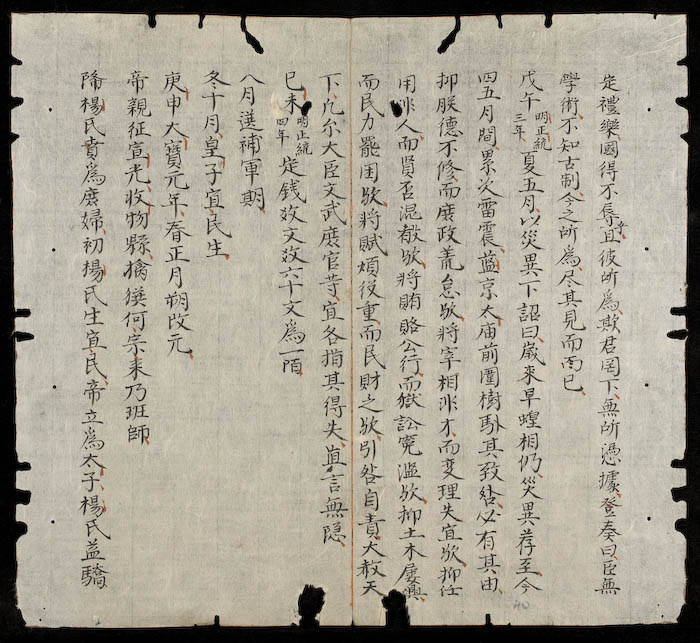 定禮樂國得不辱且彼所爲欺君罔下無所憑據登奏曰臣無
學術不知古制今之所爲尽其見而而已
戊午明正統三年夏五月以災異下詔曰歲來旱蝗相仍災異荐至今
四五月間累次雷震藍京太庙前園樹卧其致咎必有其由
抑朕德不修而庶政荒怠欤將宰相非才而变理失宜欤抑任
用非人而賢否混殽欤將賄賂公行而獄訟寃滥欤抑土木屡興
而民力罷困欤將賦煩役重而民財之欤引咎自責大赦天
下凡尔大臣文武庶官䓁宜各指其得失直言無隐
己未明正統四年定钱数文数六十文爲一陌
八月選補軍期
冬十月皇子宜民生
庚申大寶元年春正月朔改元
帝親征宣光收物縣擒獲何宗耒乃班師
降楊氏賁爲庶婦初楊氏生宜民帝立爲太子楊氏益驕